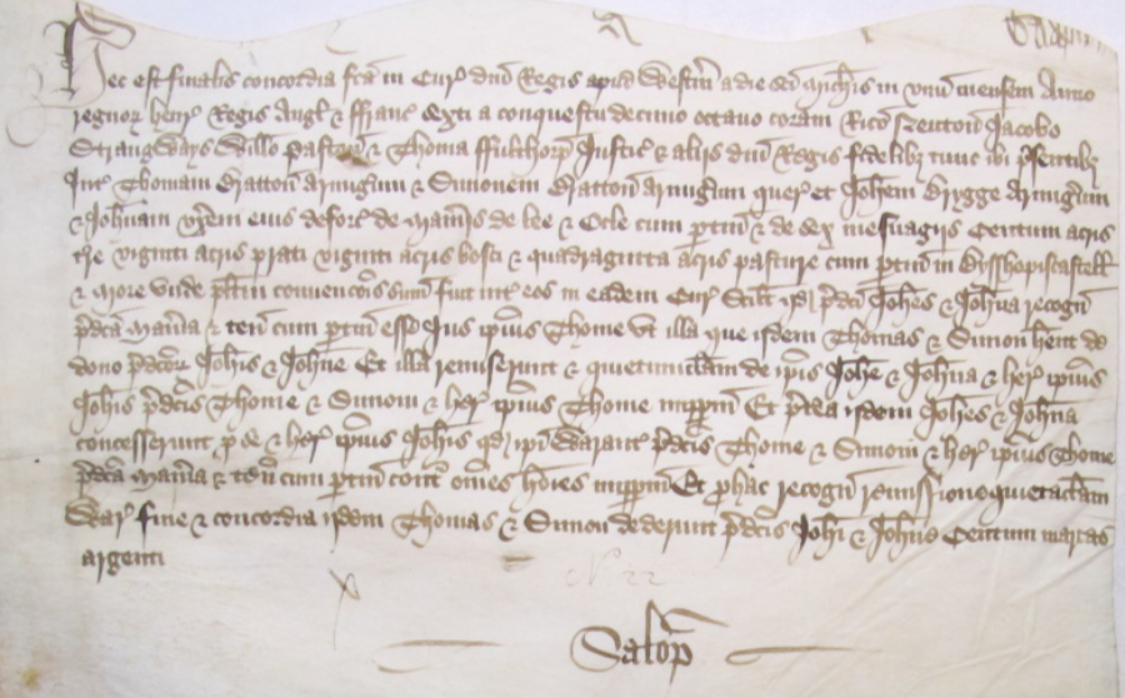 Hec est finalis concordia fca in Cur dni Regis apud Westm a die sci Michis in unu mensem Anno
regnor Henr Regis Angl & ffranc sexti a conquestu decimo octavo coram Rico Neuton Jacobo
Strangways Willo Paston & Thoma ffulthorp Justic & alijs dni Regis fidelibz tunc ibi psentibz
Int Thomam Mutton armigum & Simonem Mutton armigum quer et Johem Brygge Armigum
& Johnam uxem eius deforc de Manijs de lee & Ocle cum ptin & de sex mesuagijs Centum acris
tre viginti acris prati viginti acris bosci & quadraginta acris pasture cum ptin in Bysshopiscastell
& More unde plitm convencois sum fuit int eos in eadem Cur Scilt qd pdci Johes & Johna recogn
pdca Mania & ten cum ptin esse Jus ipius Thome ut illa que ijdem Thomas & Simon hent de
dono pdcor Johis & Johne Et illa remiserunt & quietumclam de ipis Johe & Johna & her ipius
Johis pdcis Thome & Simoni & her ipius Thome imppm Et ptea ijdem Johes & Johna
concesserunt p se & her ipius Johis qd ipi Warant pdcis Thome & Simoni & her ipius Thome
pdca Mania & ten cum ptin cont omes hoies imppm Et p hac recogn remissione quietaclam
War fine & concordia ijdem Thomas & Simon dederunt pdcis Johi & Johne Centum marcas
argenti
Salop